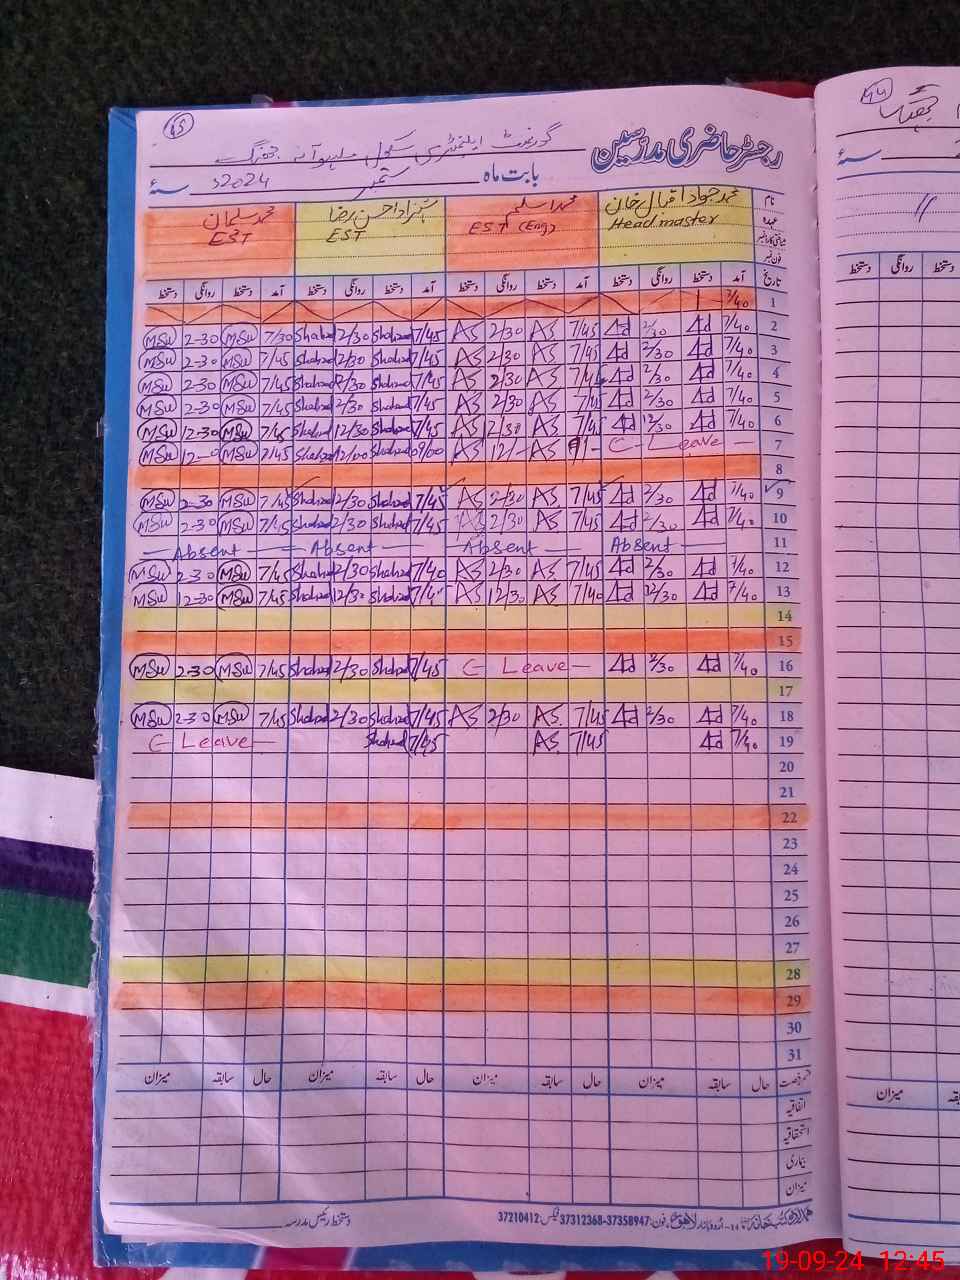 45
رجسٹر حاضری مدرسین
گورنمنٹ ایلیمنٹری سکول
بابت ماہ ستمبر سنہ 2024ء
نام محمد جواد اقبال خان محمد اسلم شہزاد احسن رضا محمد سلمان
عہدہ Head master EST (Eng) EST EST
فون نمبر
تاریخ آمد دستخط روانگی دستخط آمد دستخط روانگی دستخط آمد دستخط روانگی دستخط آمد دستخط روانگی دستخط
1 7/40
2 7/40 2/30 7/45 AS 2/30 AS 7/45 Shahzad 2/30 Shahzad 7/30 MSW 2-30 MSW
3 7/40 2/30 7/45 AS 2/30 AS 7/45 Shahzad 2/30 Shahzad 7/45 MSW 2-30 MSW
4 7/40 2/30 7/45 AS 2/30 AS 7/45 Shahzad 2/30 Shahzad 7/45 MSW 2-30 MSW
5 7/40 2/30 7/45 AS 2/30 AS 7/45 Shahzad 2/30 Shahzad 7/45 MSW 2-30 MSW
6 7/40 12/30 7/45 AS 12/30 AS 7/45 Shahzad 12/30 Shahzad 7/45 MSW 12-30 MSW
7 C- Leave AS 12/- AS 09/00 Shahzad 12/00 Shahzad MSW 12-0 MSW
8
9 7/40 2/30 7/45 AS 2/30 AS 7/45 Shahzad 2/30 Shahzad 7/45 MSW 2-30 MSW
10 7/40 2/30 7/45 AS 2/30 AS 7/45 Shahzad 2/30 Shahzad 7/45 MSW 2-30 MSW
11 Absent Absent Absent Absent
12 7/40 2/30 7/45 AS 2/30 AS 7/40 Shahzad 2/30 Shahzad 7/45 MSW 2-30 MSW
13 7/40 12/30 7/40 AS 12/30 AS Shahzad 12/30 Shahzad 7/45 MSW 12-30 MSW
14
15
16 7/40 2/30 C- Leave 7/45 Shahzad 2/30 Shahzad 7/45 MSW 2-30 MSW
17
18 7/40 2/30 7/45 AS 2/30 AS 7/45 Shahzad 2/30 Shahzad 7/45 MSW 2-30 MSW
19 7/40 7/45 AS 7/45 Shahzad C- Leave
20
21
22
23
24
25
26
27
28
29
30
31
حال سابقہ میزان حال سابقہ میزان حال سابقہ میزان حال سابقہ میزان
اتفاقیہ
استحقاقیہ
بیماری
میزان
دستخط رئیس مدرسہ
اردو بازار لاہور فون: 37358947-37312368 فیکس: 37210412
44
سنہ
روانگی دستخط
میزان
19-09-24 12:45